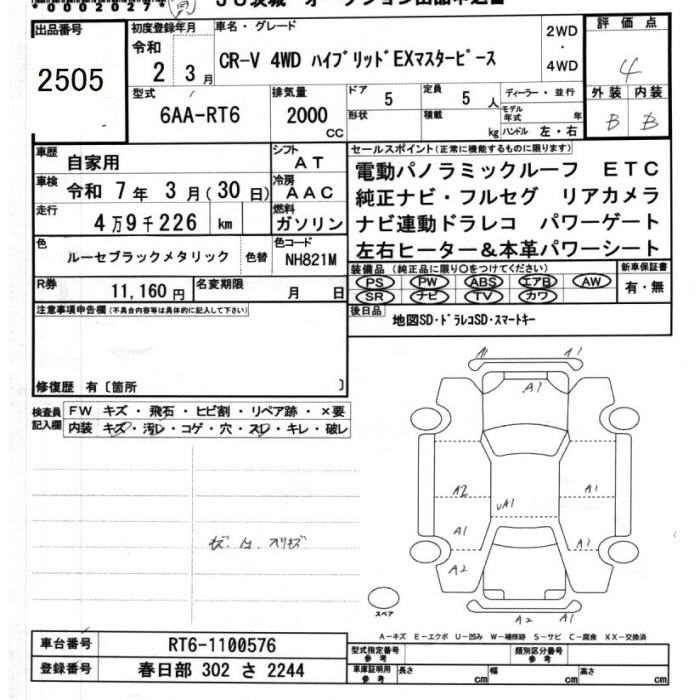 *00002027*
JU茨城 オークション出品申込書
出品番号 2505
初度登録年月 令和 2 3月
車名・グレード CR-V 4WD ハイブリッドEXマスターピース
2WD・4WD
評価点 4
外装 内装
B B
型式 6AA-RT6
排気量 2000 CC
ドア 5
定員 5 人
ディーラー・並行
形状
積載 kg
モデル年式 年
ハンドル 左・右
車歴 自家用
シフト AT
車検 令和 7年 3月(30日)
冷房 AAC
走行 4万9千226 km
燃料 ガソリン
色 ルーセブラックメタリック
色替
色コード NH821M
R券 11,160円
名変期限 月 日
セールスポイント(正常に機能するものに限ります)
電動パノラミックルーフ ETC
純正ナビ・フルセグ リアカメラ
ナビ連動ドラレコ パワーゲート
左右ヒーター&本革パワーシート
装備品(純正品に限り○をつけてください)
新車保証書
PS PW ABS エアB AW
有・無
SR ナビ TV カワ
後日品 地図SD・ドラレコSD・スマートキー
注意事項申告欄(不具合内容等は具体的に記入して下さい)
修復歴 有〔箇所 〕
検査員記入欄
FW キズ・飛石・ヒビ割・リペア跡・×要
内装 キズ・汚レ・コゲ・穴・スレ・キレ・破レ
A1 A1
A1
A2 A1
UA1
A1 A1
A2
A2 A1
スペア
A-キズ E-エクボ U-凹み W-補修跡 S-サビ C-腐食 XX-交換済
車台番号 RT6-1100576
型式指定番号 参考
類別区分番号 参考
登録番号 春日部 302 さ 2244
車庫証明用 参考
長さ cm
幅 cm
高さ cm